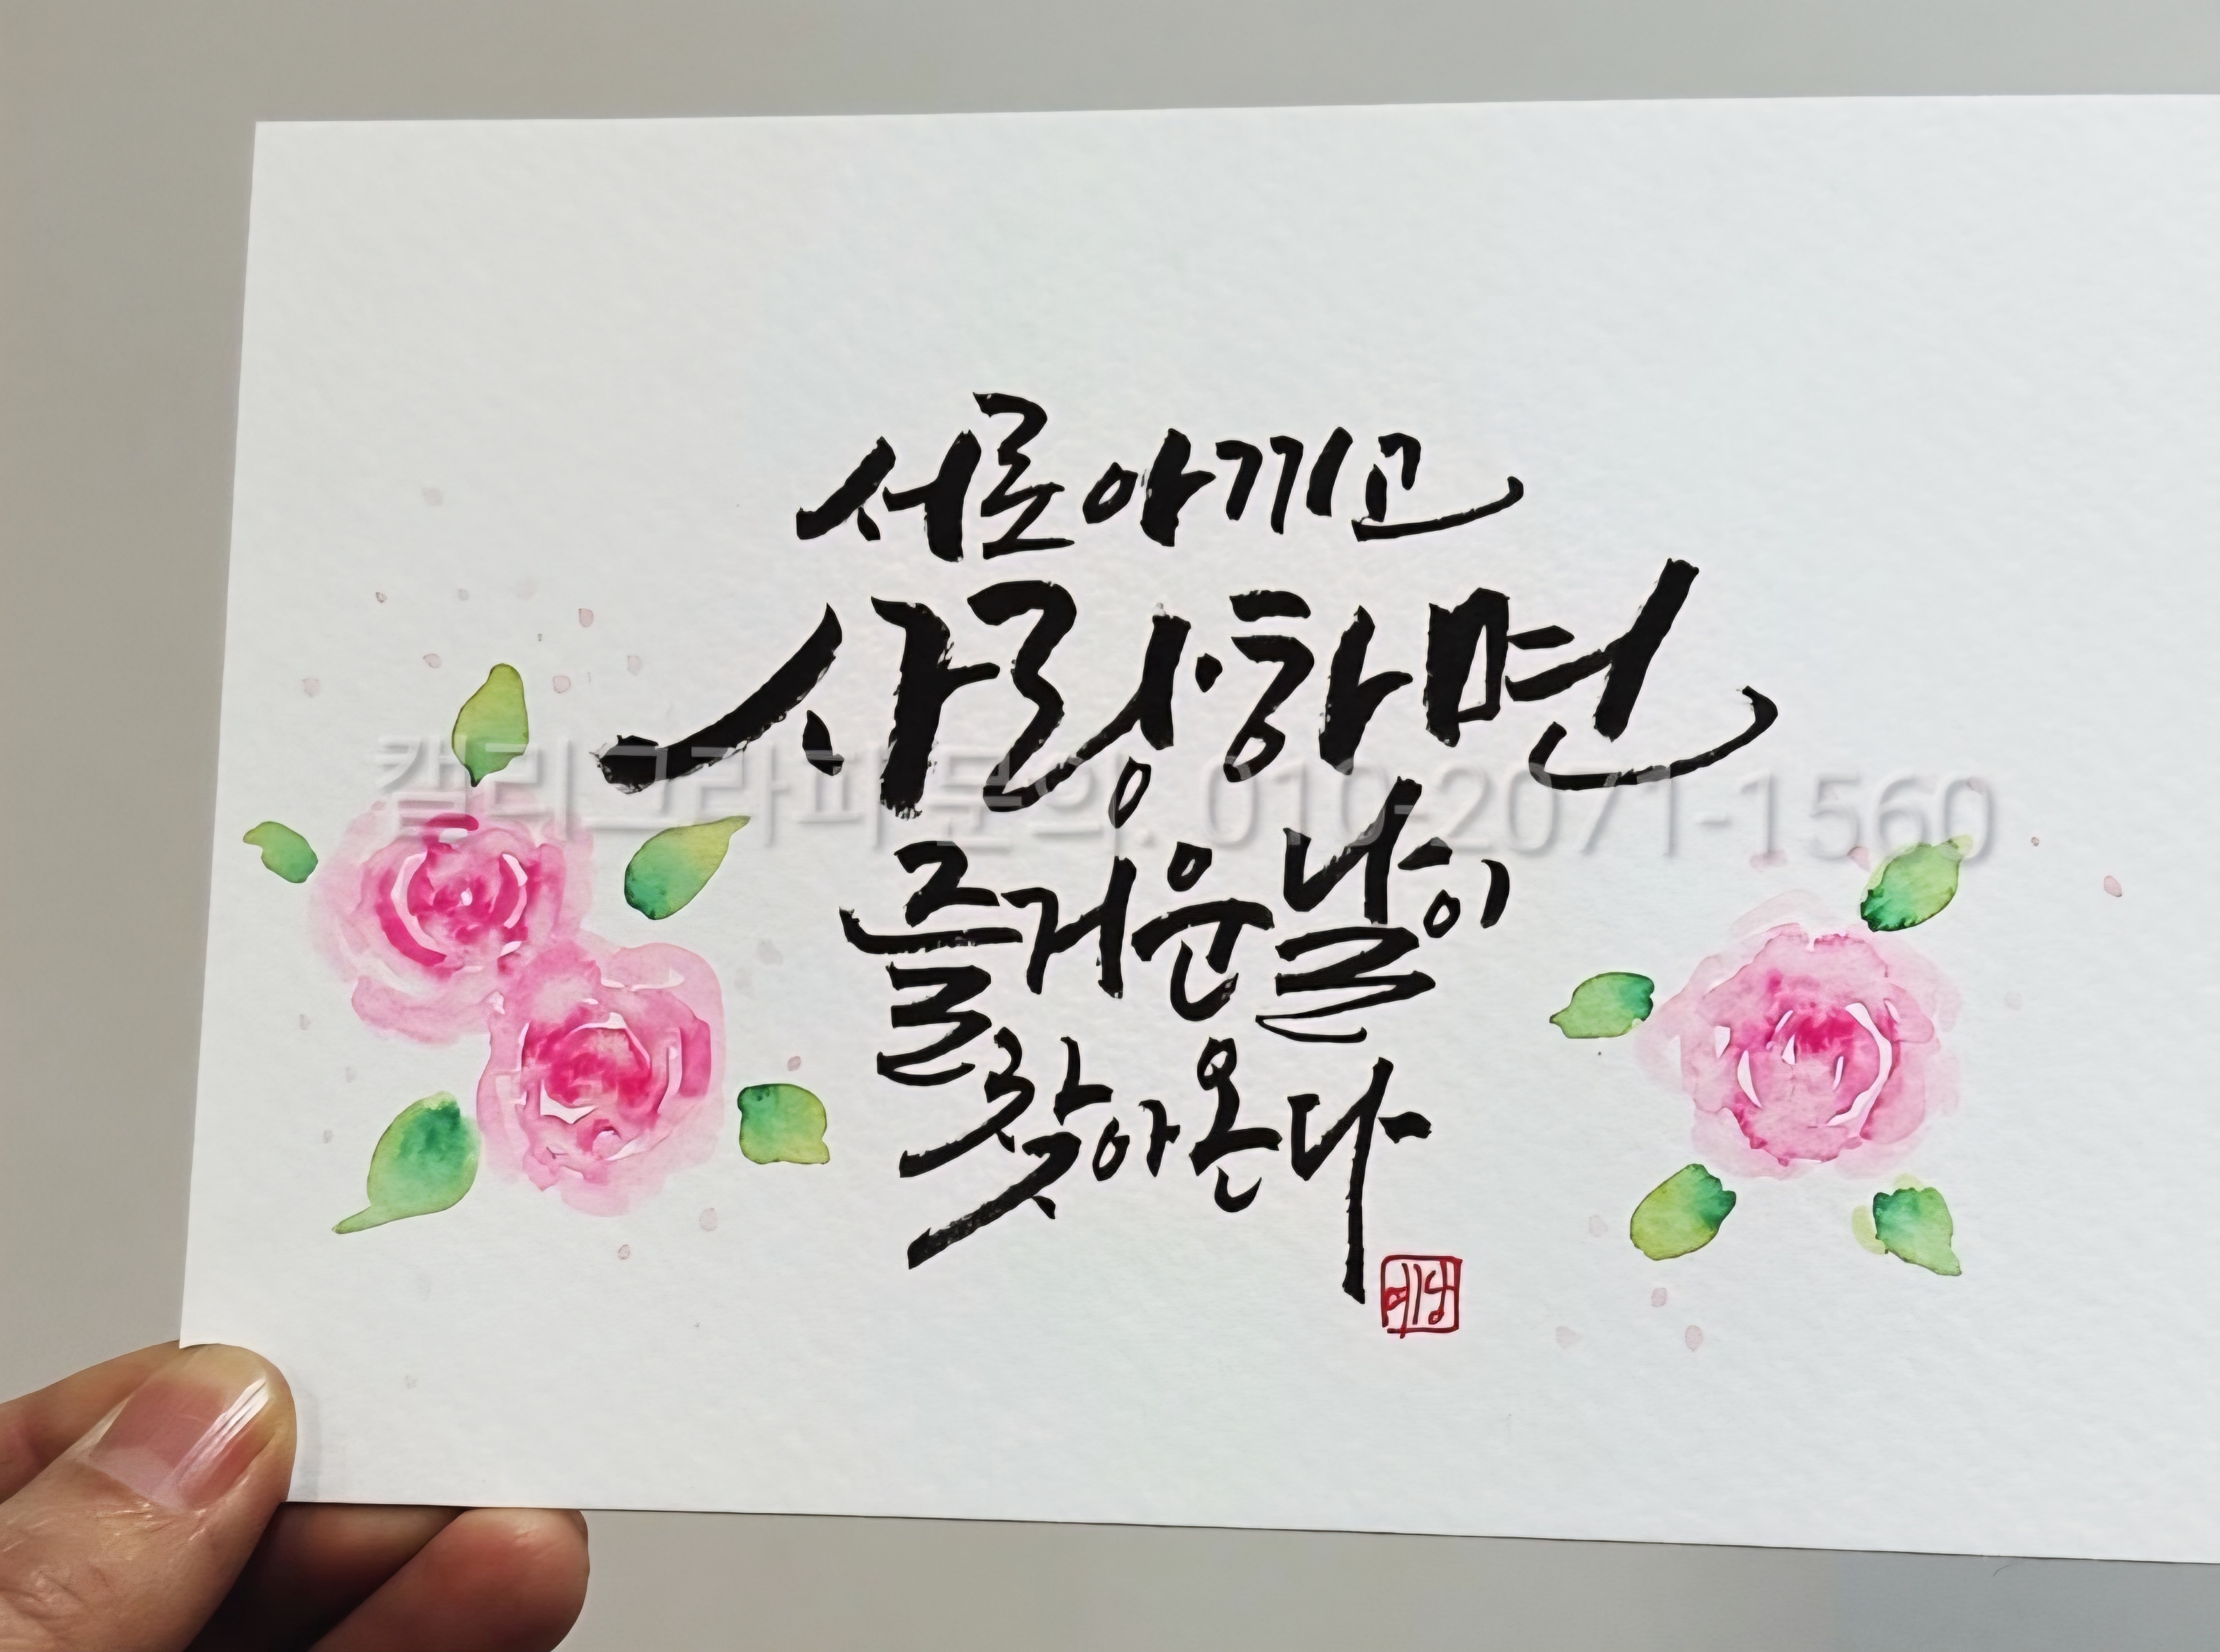 서로 아끼고
사랑하면
캘리그라피 문의. 010-2071-1560
즐거운 날이
찾아온다